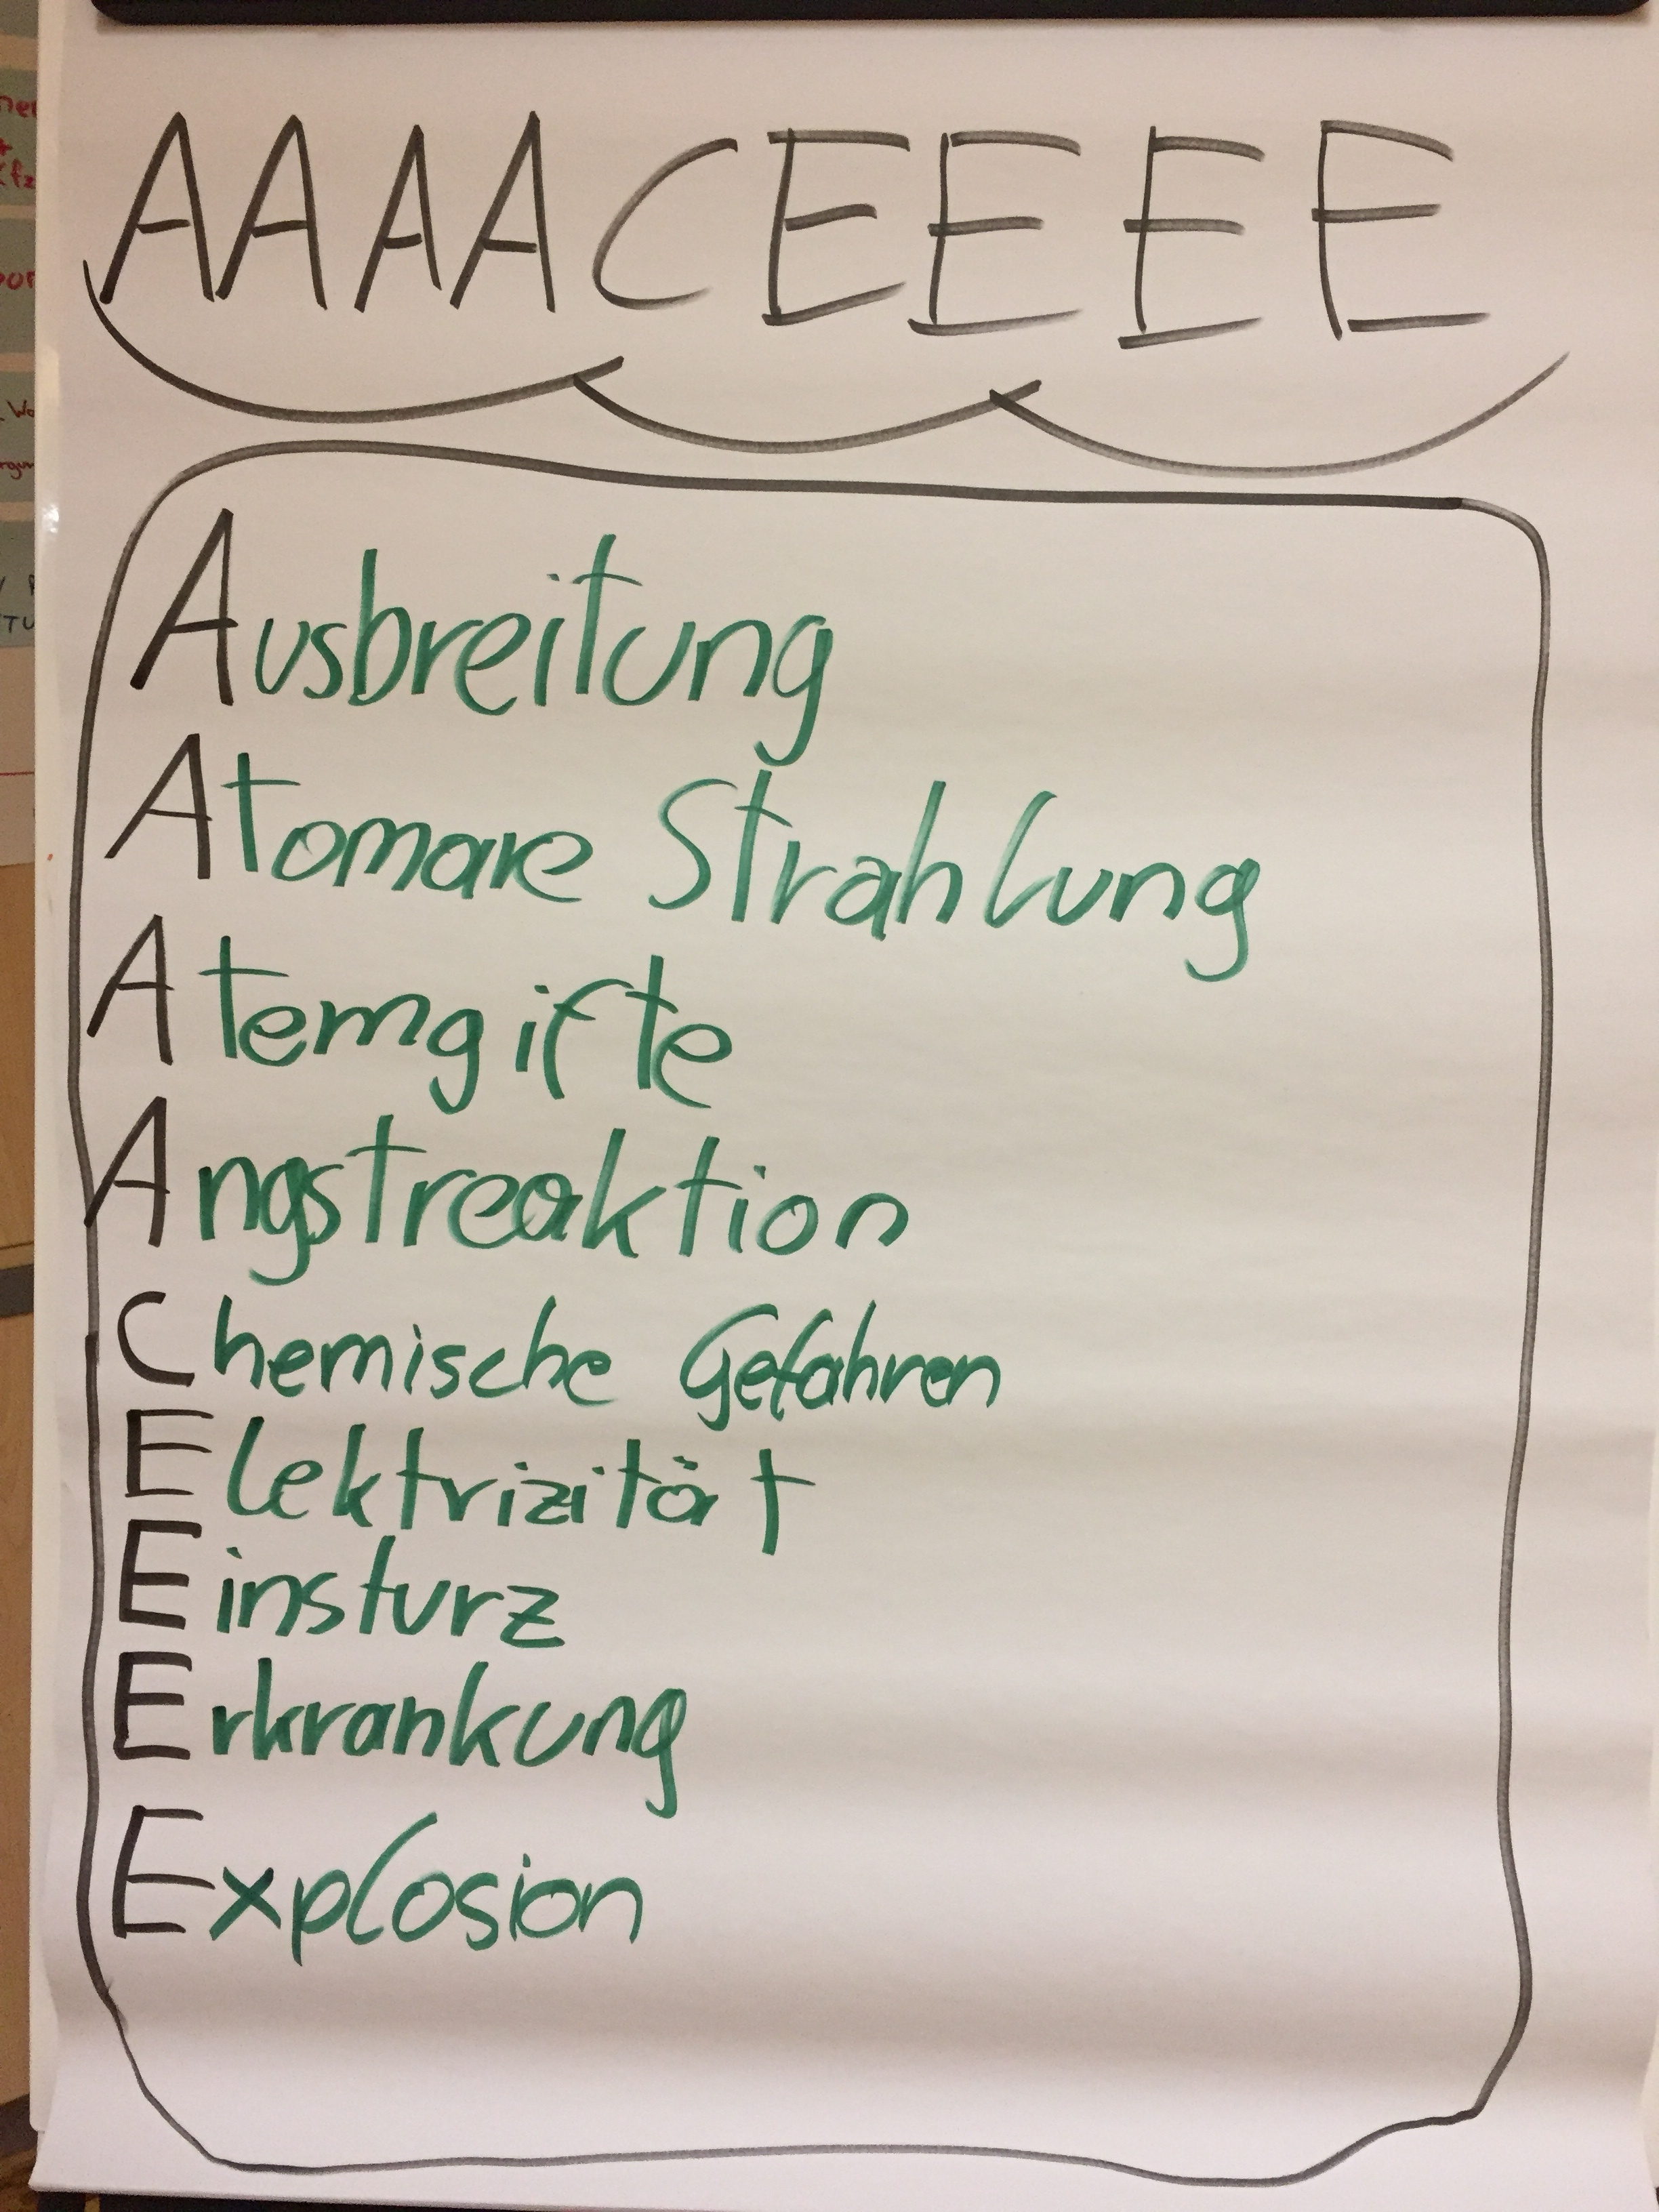 AAAACEEEE
Ausbreitung
Atomare Strahlung
Atemgifte
Angstreaktion
Chemische Gefahren
Elektrizität
Einsturz
Erkrankung
Explosion